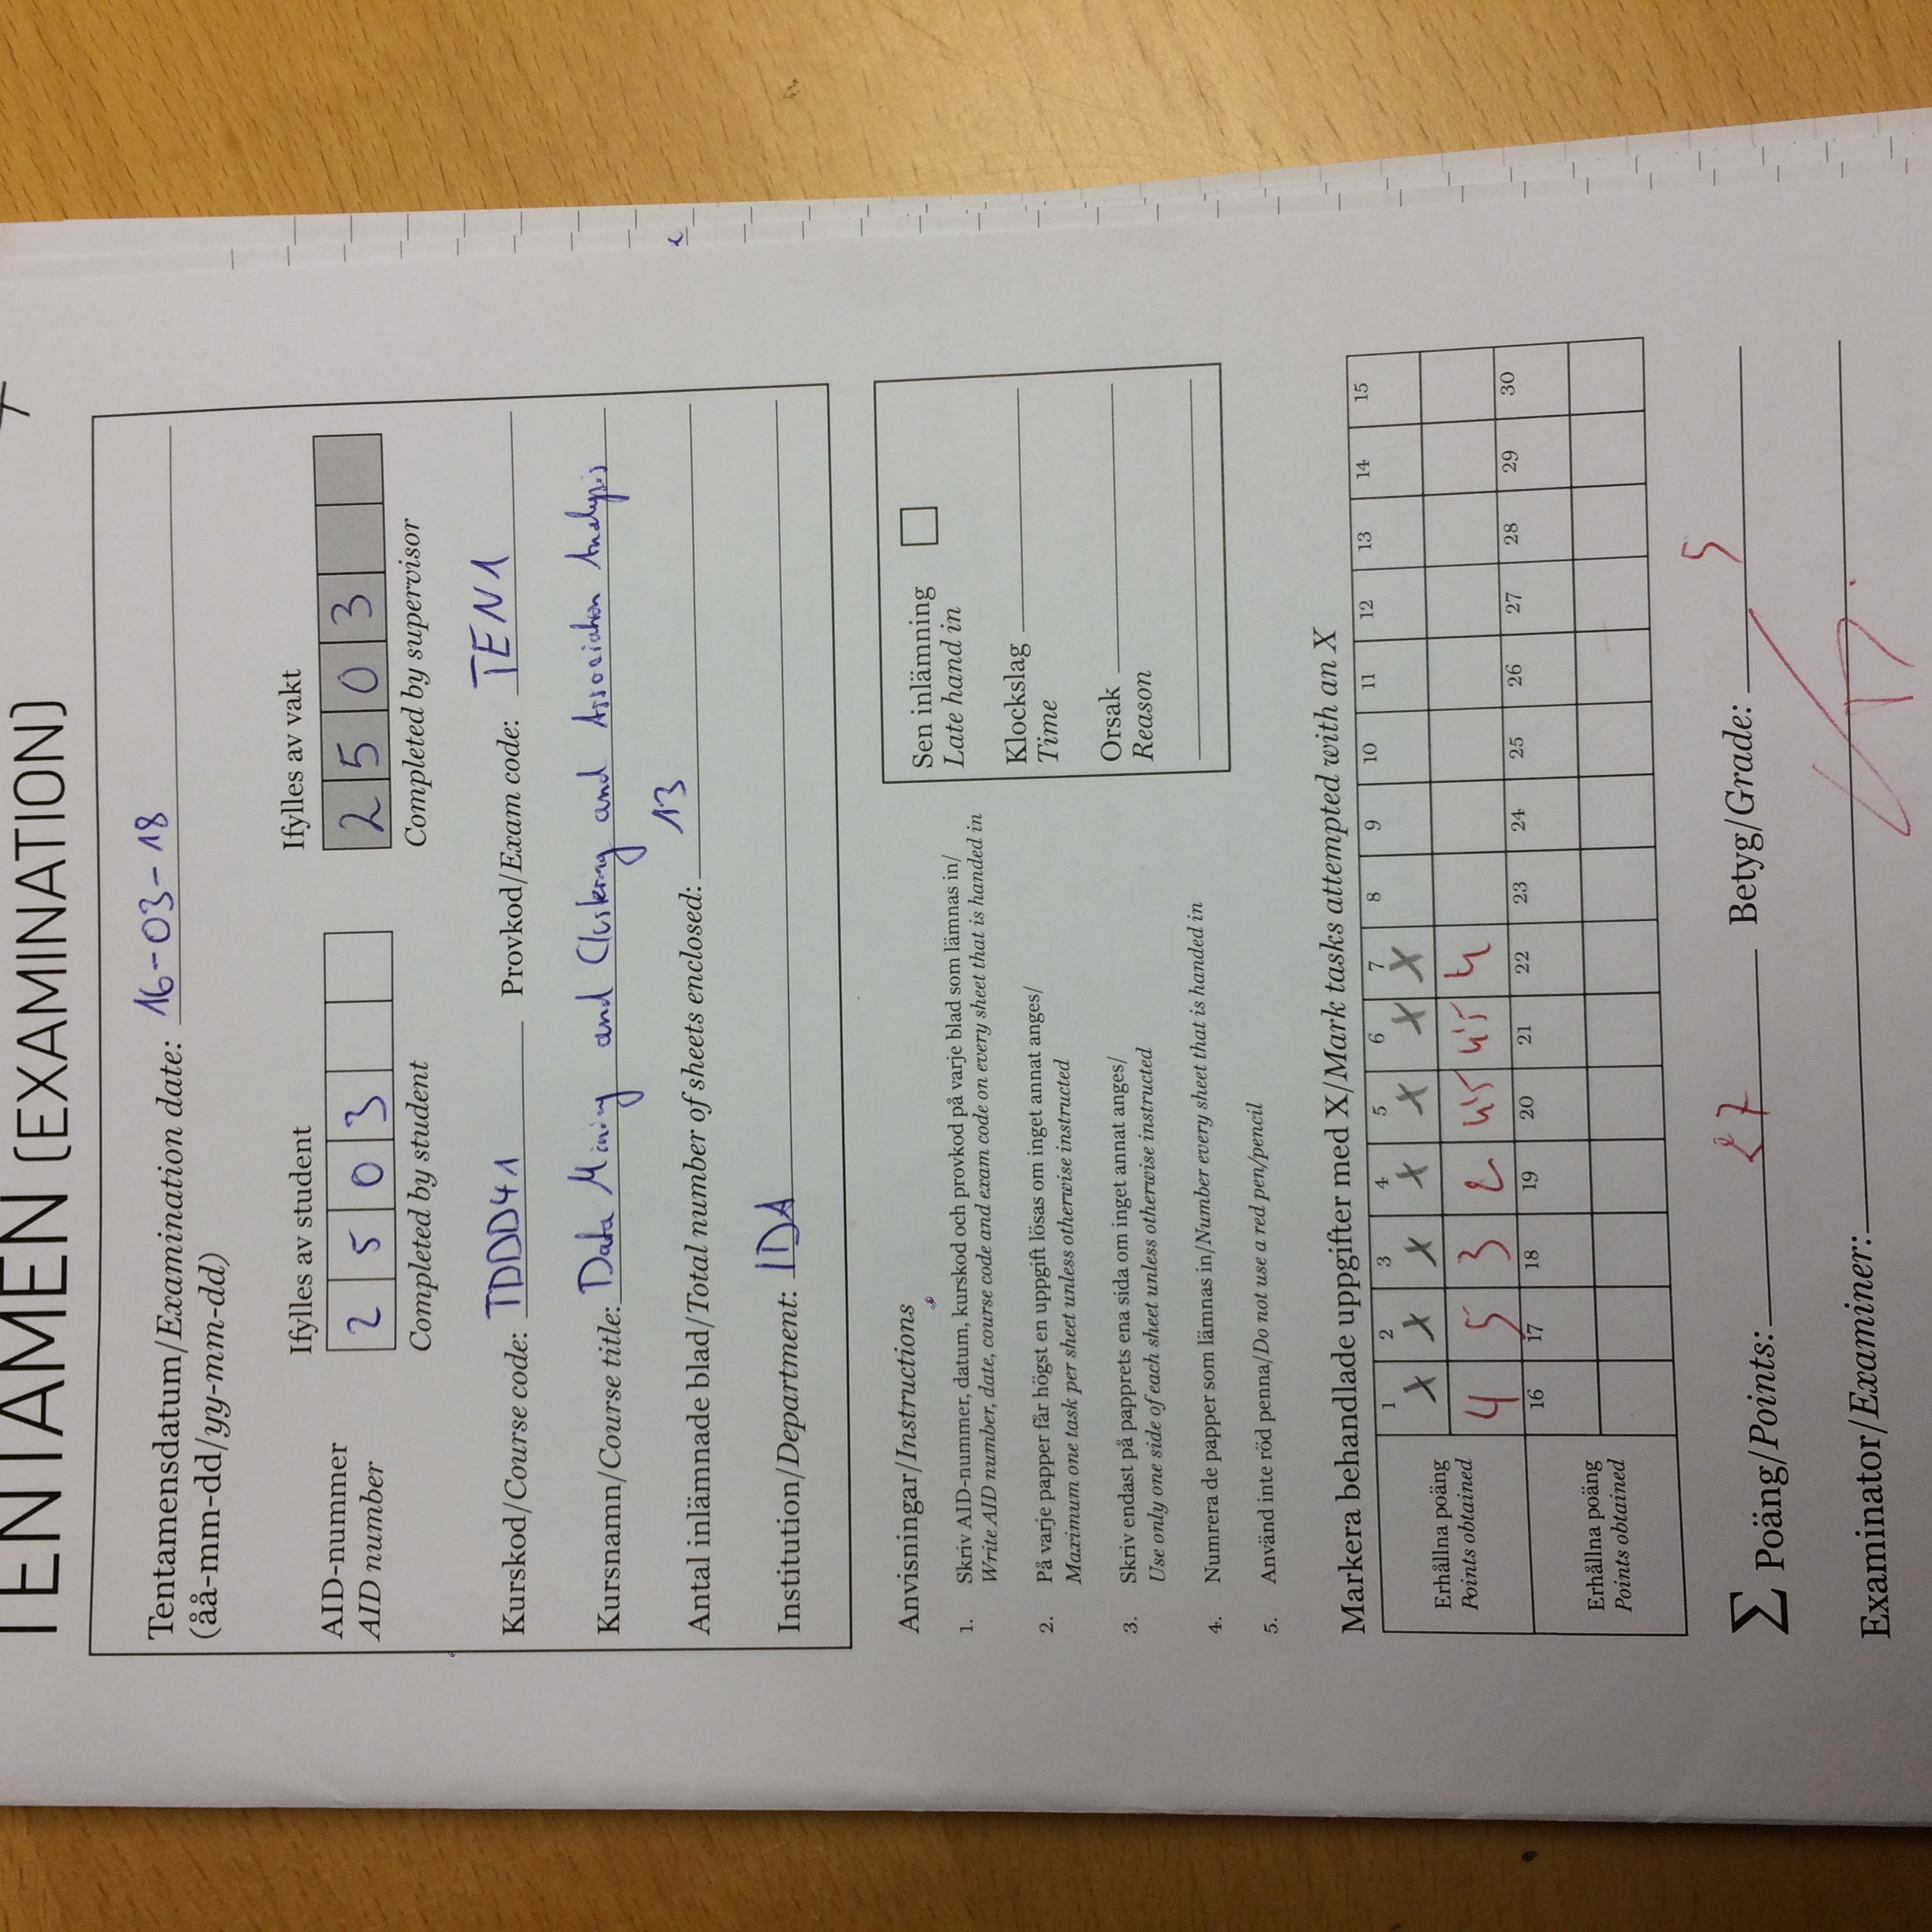 TENTAMEN (EXAMINATION)
Tentamensdatum/Examination date: 16-03-18
(åå-mm-dd/yy-mm-dd)
Ifylles av student
Ifylles av vakt
AID-nummer
AID number
2 5 0 3
2 5 0 3
Completed by student
Completed by supervisor
Kurskod/Course code: TDDD41 Provkod/Exam code: TEN1
Kursnamn/Course title: Data Mining and Clustering and Association Analysis
Antal inlämnade blad/Total number of sheets enclosed: 13
Institution/Department: IDA
Anvisningar/Instructions
1. Skriv AID-nummer, datum, kurskod och provkod på varje blad som lämnas in/
Write AID number, date, course code and exam code on every sheet that is handed in
2. På varje papper får högst en uppgift lösas om inget annat anges/
Maximum one task per sheet unless otherwise instructed
3. Skriv endast på papprets ena sida om inget annat anges/
Use only one side of each sheet unless otherwise instructed
4. Numrera de papper som lämnas in/Number every sheet that is handed in
5. Använd inte röd penna/Do not use a red pen/pencil
Sen inlämning
Late hand in
Klockslag
Time
Orsak
Reason
Markera behandlade uppgifter med X/Mark tasks attempted with an X
1 2 3 4 5 6 7 8 9 10 11 12 13 14 15
X X X X X X X
Erhållna poäng
Points obtained
4 5 3 2 4'5 4'5 4
16 17 18 19 20 21 22 23 24 25 26 27 28 29 30
Erhållna poäng
Points obtained
Σ Poäng/Points: 27 Betyg/Grade: 5
Examinator/Examiner: